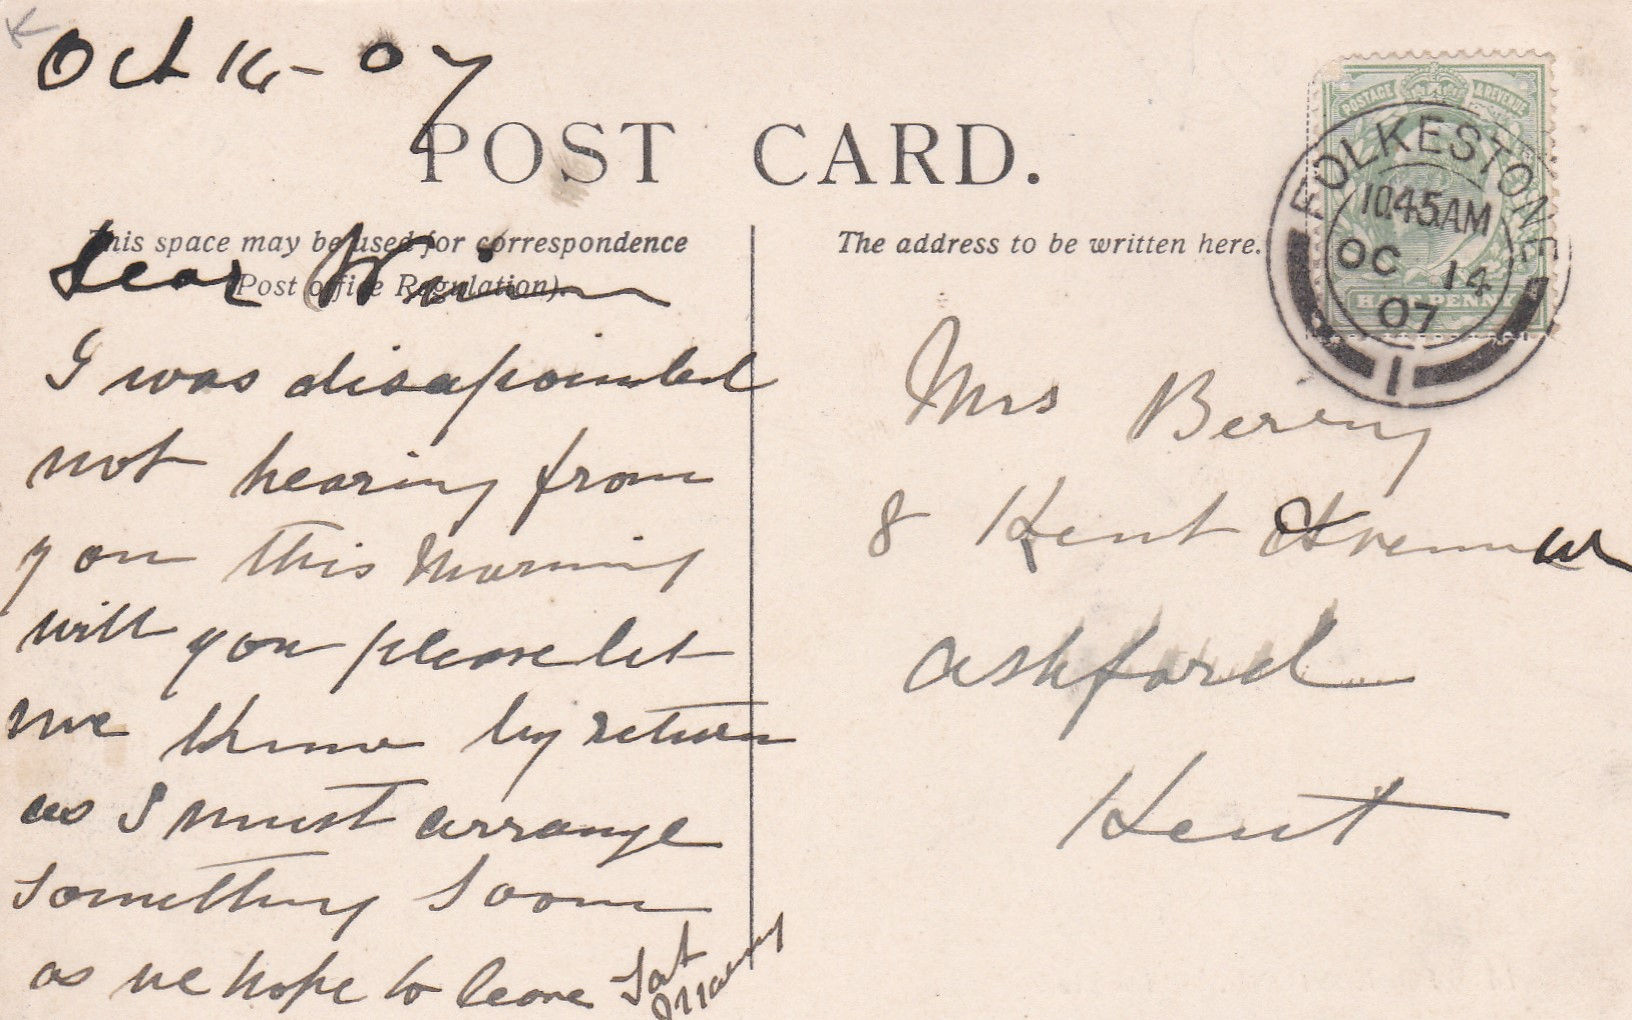 Oct 14-07
POST CARD.
This space may be used for correspondence
(Post office Regulation).
The address to be written here.
POSTAGE & REVENUE
HALFPENNY
FOLKESTONE
10.45AM
OC 14
07
1
Dear Win
I was disapointed
not hearing from
you this Morning
will you please let
me know by return
as I must arrange
something soon
as we hope to leave Sat
Mary
Mrs Berry
8 Kent Avenue
Ashford
Kent